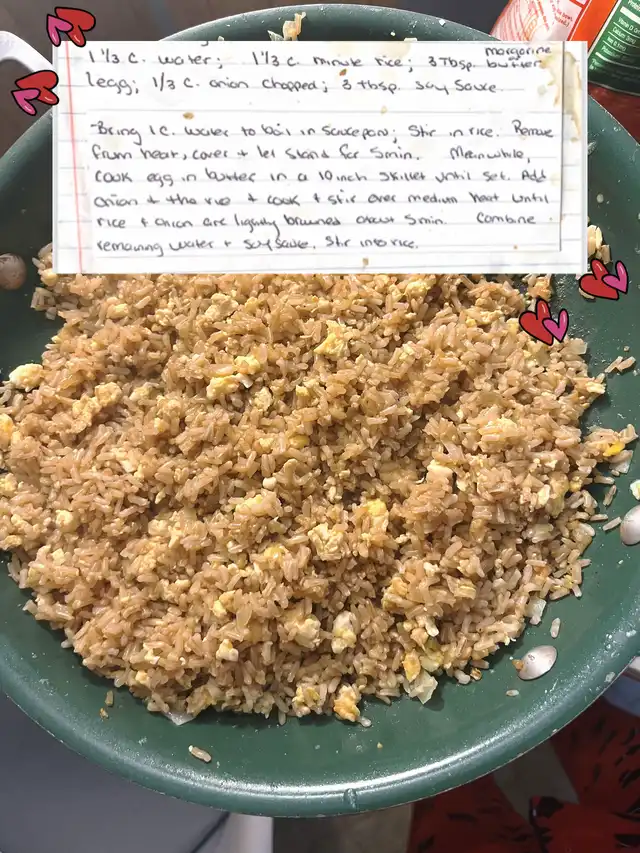 1 1/3 c. water; 1 1/3 c. minute rice; 3 Tbsp. margarine butter
1 egg; 1/3 c. onion chopped; 3 tbsp. soy sauce.
Bring 1 c. water to boil in saucepan; Stir in rice. Remove
from heat, cover + let stand for 5 min. Meanwhile,
cook egg in butter in a 10 inch skillet until set. Add
onion + the rice + cook + stir over medium heat until
rice + onion are lightly browned about 5 min. Combine
remaining water + soy sauce. Stir into rice.